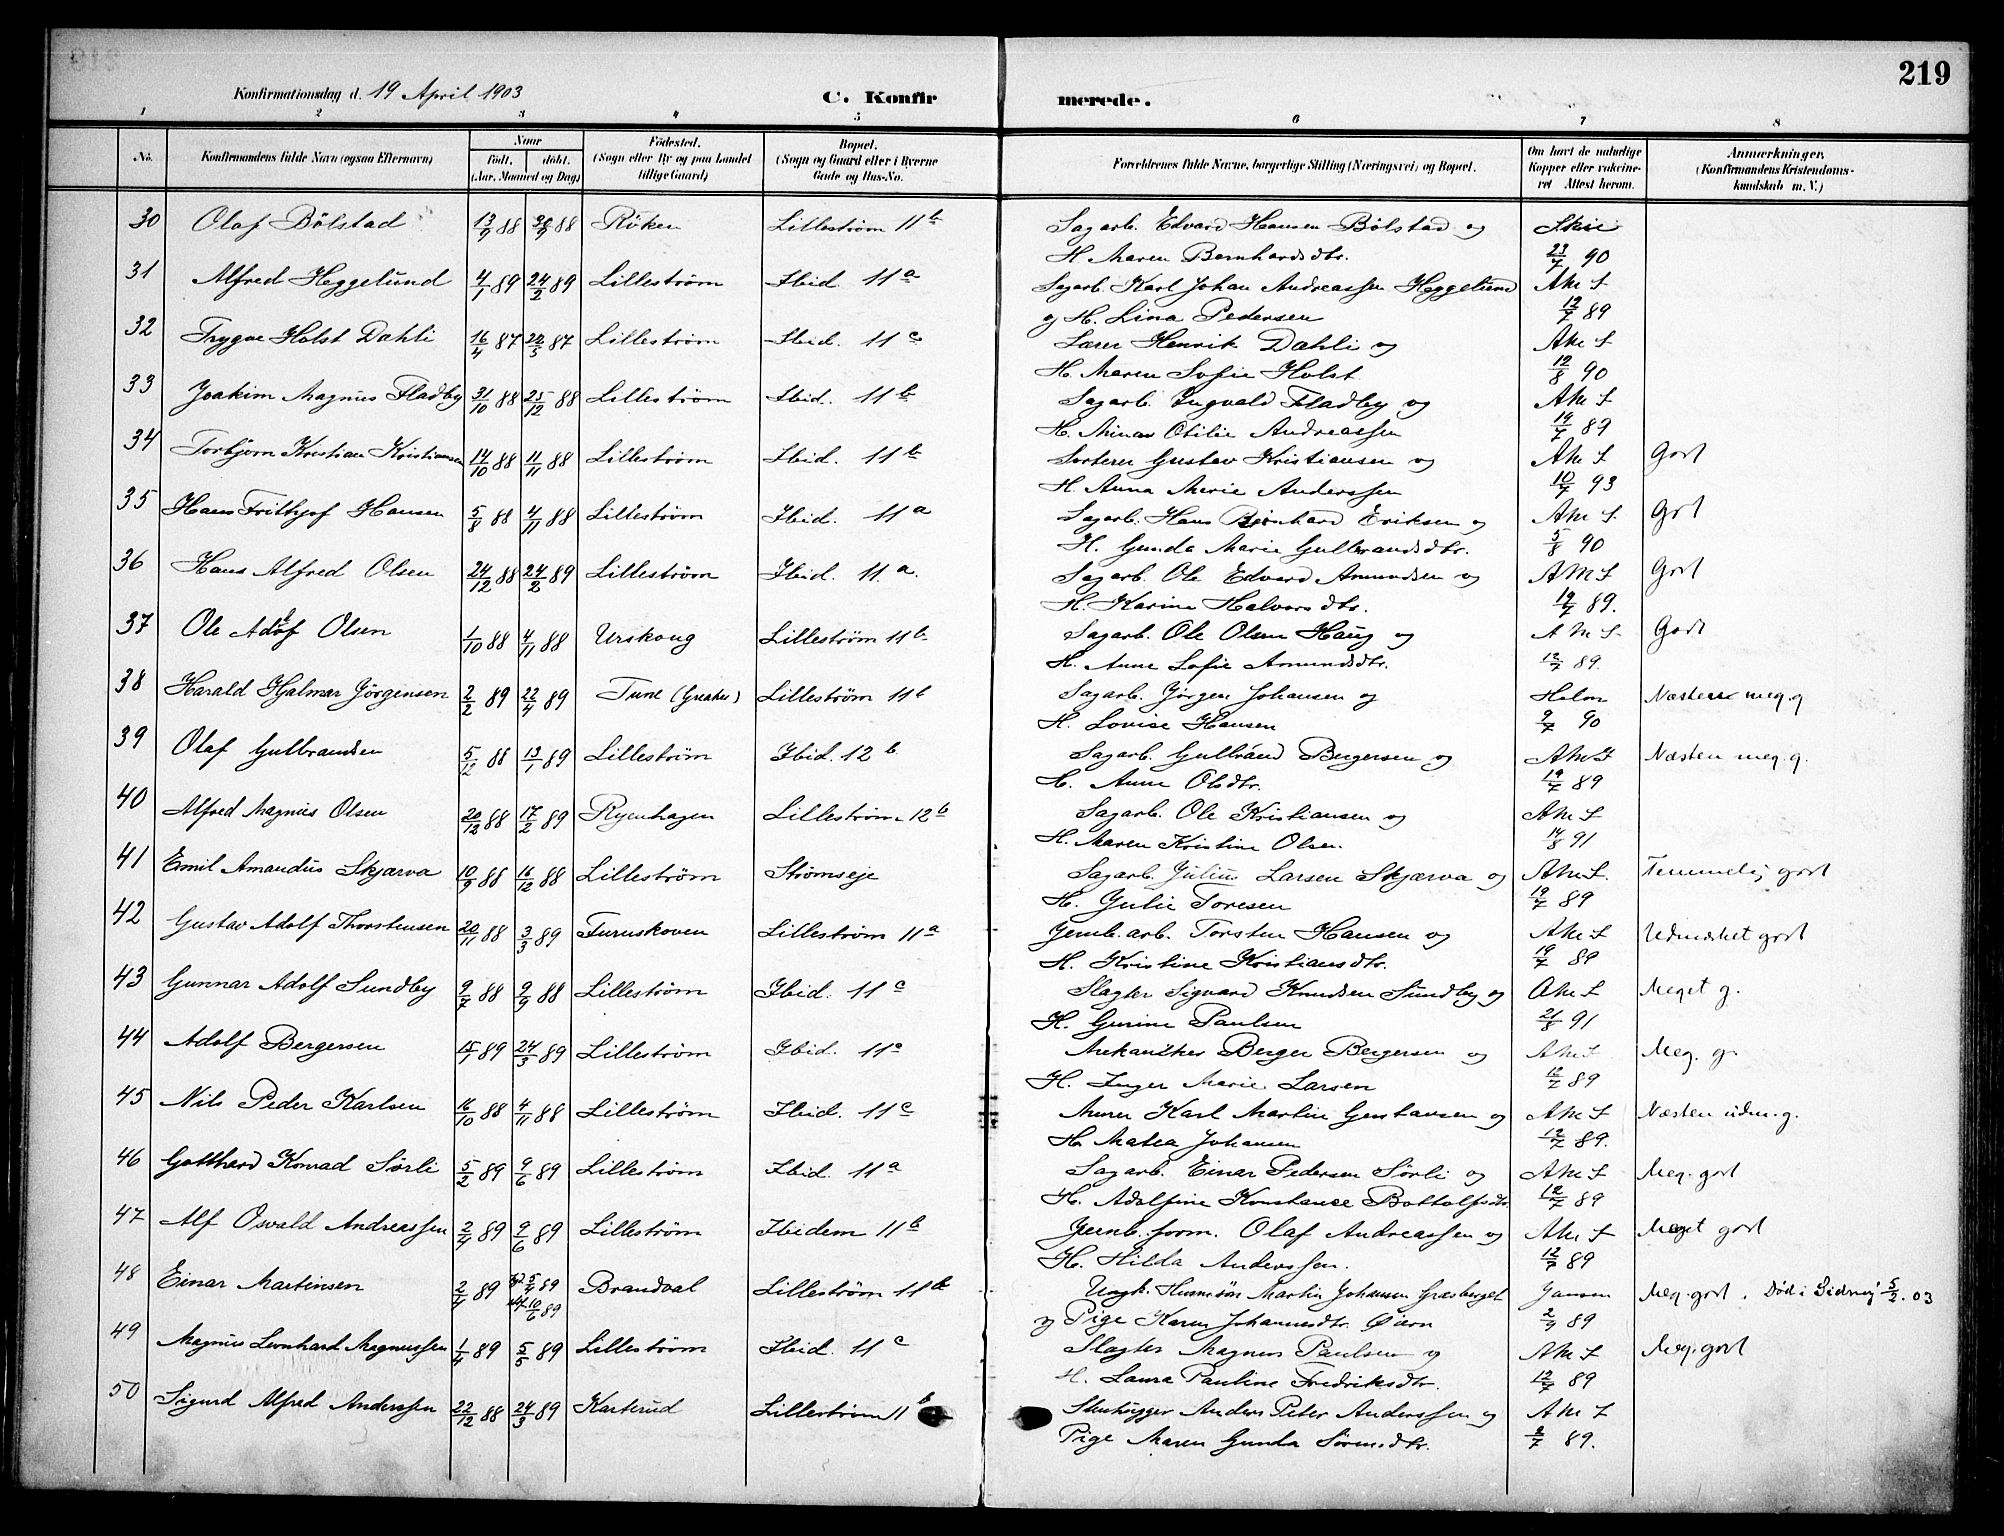 219
Konfirmationsdag d. 19 April 1903
C. Konfirmerede.
1 2 3 4 5 6 7 8
No.
Konfirmandens fulde Navn (ogsaa Efternavn)
Naar
födt, döbt.
(Aar, Maaned og Dag)
Födested.
(Sogn eller By og paa Landet tillige Gaard)
Bopæl.
(Sogn og Gaard eller i Byerne Gade og Hus-No.
Forældrenes fulde Navne, borgerlige Stilling (Næringsvei) og Bopæl.
Om havt de naturlige Kopper eller vakcineret. Attest herom.
Anmærkninger,
(Konfirmandens Kristendomskundskab m. V.)
30 Olaf Bölstad 13/9 88 88 Röken Lilleström 11 b Sagarb. Edvard Hansen Bölstad og Skie
H. Maren Bernhardsdtr. 23/7 90
31 Alfred Heggelund 4/1 89 24/2 89 Lilleström Ibid. 11 a Sagarb. Karl Johan Andreassen Heggelund AMS
og H. Lina Pedersen 12/7 89
32 Trygve Holst Dahli 16/4 87 22/5 87 Lilleström Ibid. 11 c Lærer Henrik Dahli og AMS
H. Maren Sofie Holst 12/8 90
33 Joakim Magnus Fladby 31/10 88 25/12 88 Lilleström Ibid. 11 b Sagarb. Ingvald Fladby og AMS
H. Mina Otilie Andreassen 19/7 89
34 Torbjørn Kristian Kristiansen 14/10 88 11/11 88 Lilleström Ibid. 11 b Sorterer Gustav Kristiansen og AMS Godt
H. Anna Marie Anderssen 10/7 93
35 Hans Frithjof Hansen 5/8 88 4/11 88 Lilleström Ibid. 11 a Sagarb. Hans Bernhard Eriksen og AMS Godt
H. Gunda Marie Gulbrandsdtr. 5/8 90
36 Hans Alfred Olsen 24/12 88 24/2 89 Lilleström Ibid. 11 a. Sagarb. Ole Edvard Amundsen og AMS Godt
H. Karine Halvorsdtr. 12/7 89.
37 Ole Adolf Olsen 1/10 88 4/11 88 Urskoug Lilleström 11 b. Sagarb. Ole Olsen Haug og AMS Godt
H. Anne Sofie Amundsdtr. 12/7 89.
38 Harald Hjalmar Jörgensen 2/2 89 22/4 89 Tune (Greaker) Lilleström 11 b Sagarb. Jörgen Johansen og Holm Næsten meg. g
H. Lovise Hansen 9/7 90
39 Olaf Gulbrandsen 5/12 88 13/1 89 Lilleström Ibid. 12 b Sagarb. Gulbrand Bergersen og AMS Næsten meg. g.
H. Anne Olsdtr. 19/7 89
40 Alfred Magnus Olsen 20/12 88 17/2 89 Ryenhagen Lilleström 12 b Sagarb. Ole Kristiansen og AMS
H. Maren Kristine Olsen. 14/8 91
41 Emil Amandus Skjærva 10/9 88 16/12 88 Lilleström Strömseje Sagarb. Julius Larsen Skjærva og AMS. Temmelig godt
H. Julie Toresen 19/7 89
42 Gustav Adolf Thorstensen 20/11 88 3/3 89 Furuskoven Lilleström 11 a Jernb.arb. Torsten Hansen og AMS Udmerket godt
H. Kristine Kristiansdtr. 19/7 89
43 Gunnar Adolf Sundby 9/7 88 9/9 88 Lilleström Ibid. 11 c Slagter Sigvard Knudsen Sundby og AMS Meget g.
H. Gurine Paulsen 21/8 91
44 Adolf Bergersen 15/1 89 24/3 89 Lilleström Ibid. 11 c Mekaniker Berger Bergersen og AMS Meg. g.
H. Inger Marie Larsen 12/7 89
45 Nils Peder Karlsen 16/10 88 4/11 88 Lilleström Ibid. 11 c Murer Karl Martin Gustavsen og AMS Næsten udm. g.
H. Matea Johansen 12/7 89.
46 Gotthard Konrad Sörli 5/2 89 9/6 89 Lilleström Ibid. 11 a Sagarb. Einar Pedersen Sörli og AMS Meg. godt
H. Adolfine Konstance Bottolfsdtr. 12/7 89
47 Alf Osvald Andreassen 2/4 89 9/6 89 Lilleström Ibidem 11 b Jernb.form. Olaf Andreassen og AMS Meget godt
H. Hilda Anderssen. 12/7 89
48 Einar Martinsen 2/4 89 5/4 89 10/6 89 Brandval Lilleström 11 b Ungk. Martin Johansen Græsberget Jansen Meg. godt. Död i 5/2. 03
og Pige Karen Johannesdtr. Öiern 2/9 89
49 Magnus Leonhard Magnussen 1/4 89 5/5 89 Lilleström Ibid. 11 c Slagter Magnus Paulsen og AMS Meg. godt
H. Laura Pauline Fredriksdtr. 12/7 89
50 Sigurd Alfred Anderssen 22/12 88 24/3 89 Karterud Lilleström 11 b Stenhugger Anders Peter Anderssen og AMS
Pige Maren Gunda Sörensdtr. 2/7 89.